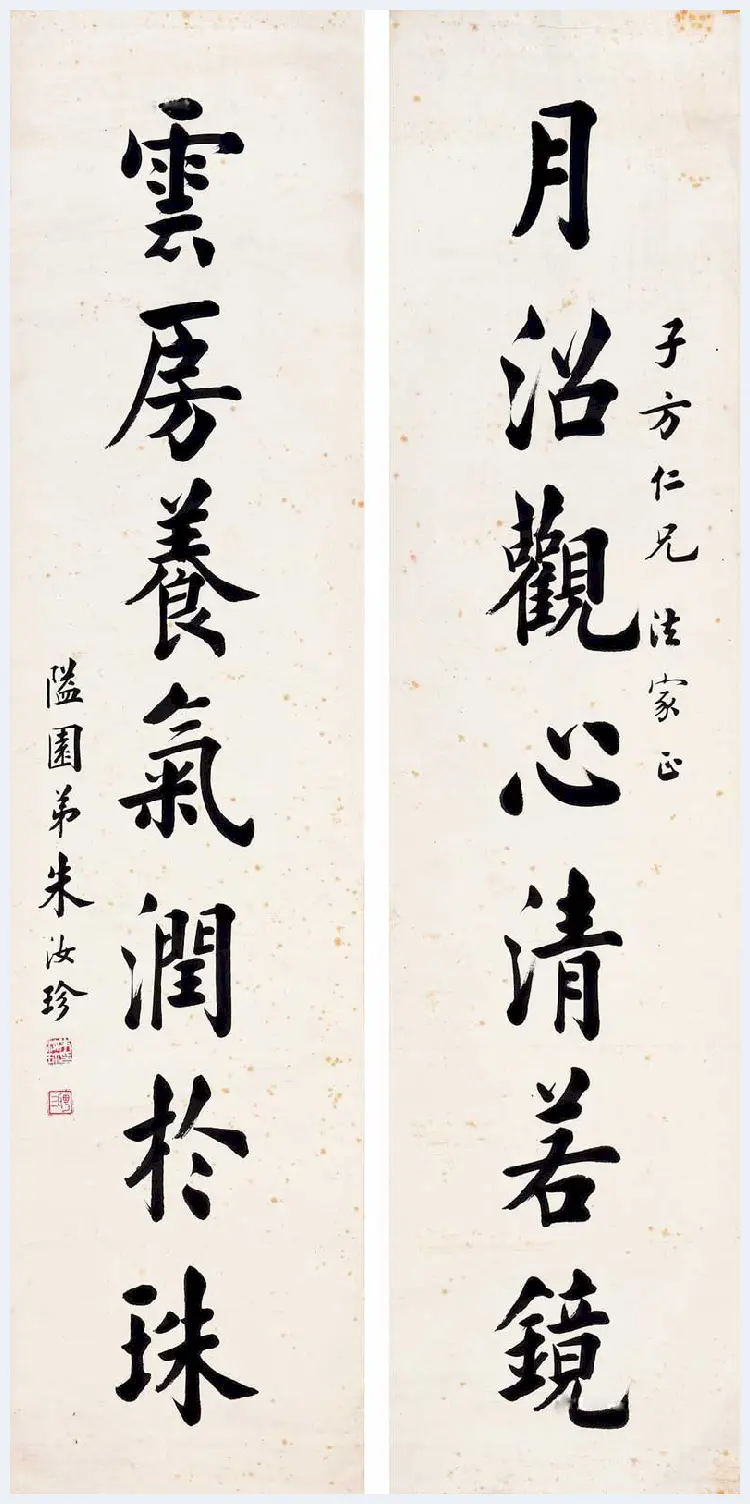 子方仁兄法家正
月沼觀心清若鏡
雲房養氣潤於珠
隘園弟朱汝珍
聘三